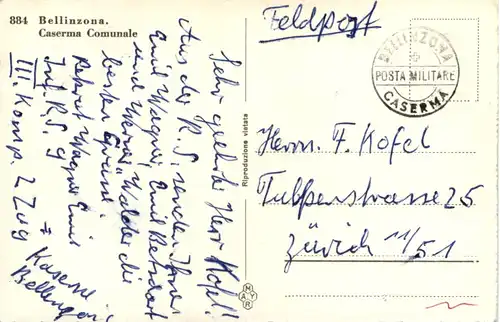 884 Bellinzona.
Caserma Comunale
Sehr geehrter Herr Kofel!
Aus der R.S. senden Ihnen
Emil Wagner, Emil Betschart
und Werner Walder die
besten Grüsse.
Rekrut Wagner Emil
Inf. R.S. 9
III. Komp. 2 Zug
Kaserne
Bellinzona
Riproduzione vietata
NAYR
Feldpost
BELLINZONA
POSTA MILITARE
CASERMA
Herrn. F. Kofel
Tulpenstrasse 25
Zürich 11/51